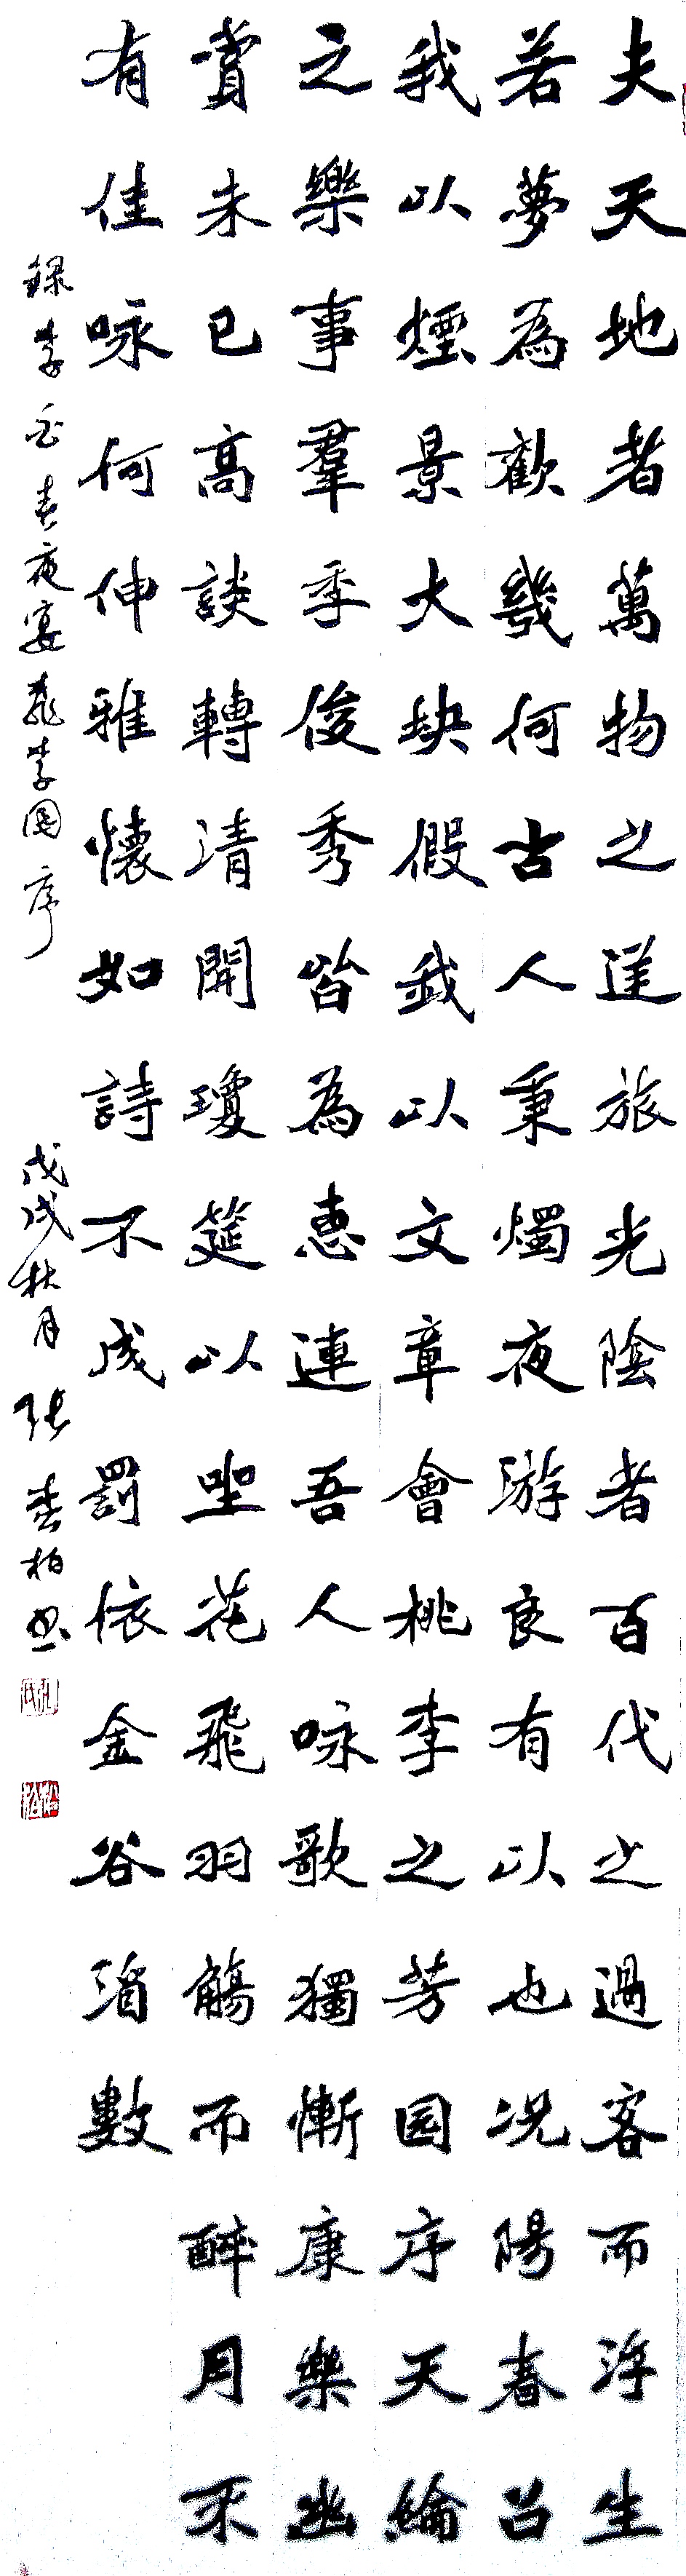 夫天地者萬物之逆旅光陰者百代之過客而浮生
若夢為歡幾何古人秉燭夜游良有以也况陽春召
我以煙景大块假我以文章會桃李之芳园序天倫
之樂事羣季俊秀皆為惠連吾人咏歌獨慚康樂幽
賞未已高談轉清開瓊筵以坐花飛羽觴而醉月不
有佳咏何伸雅懷如詩不成罰依金谷酒數
録李白春夜宴桃李園序
戊戌秋月張春柏书